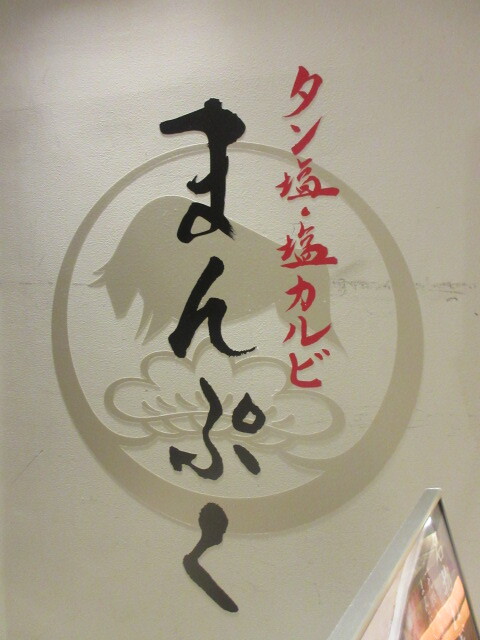 タン塩・塩カルビ
まんぷく